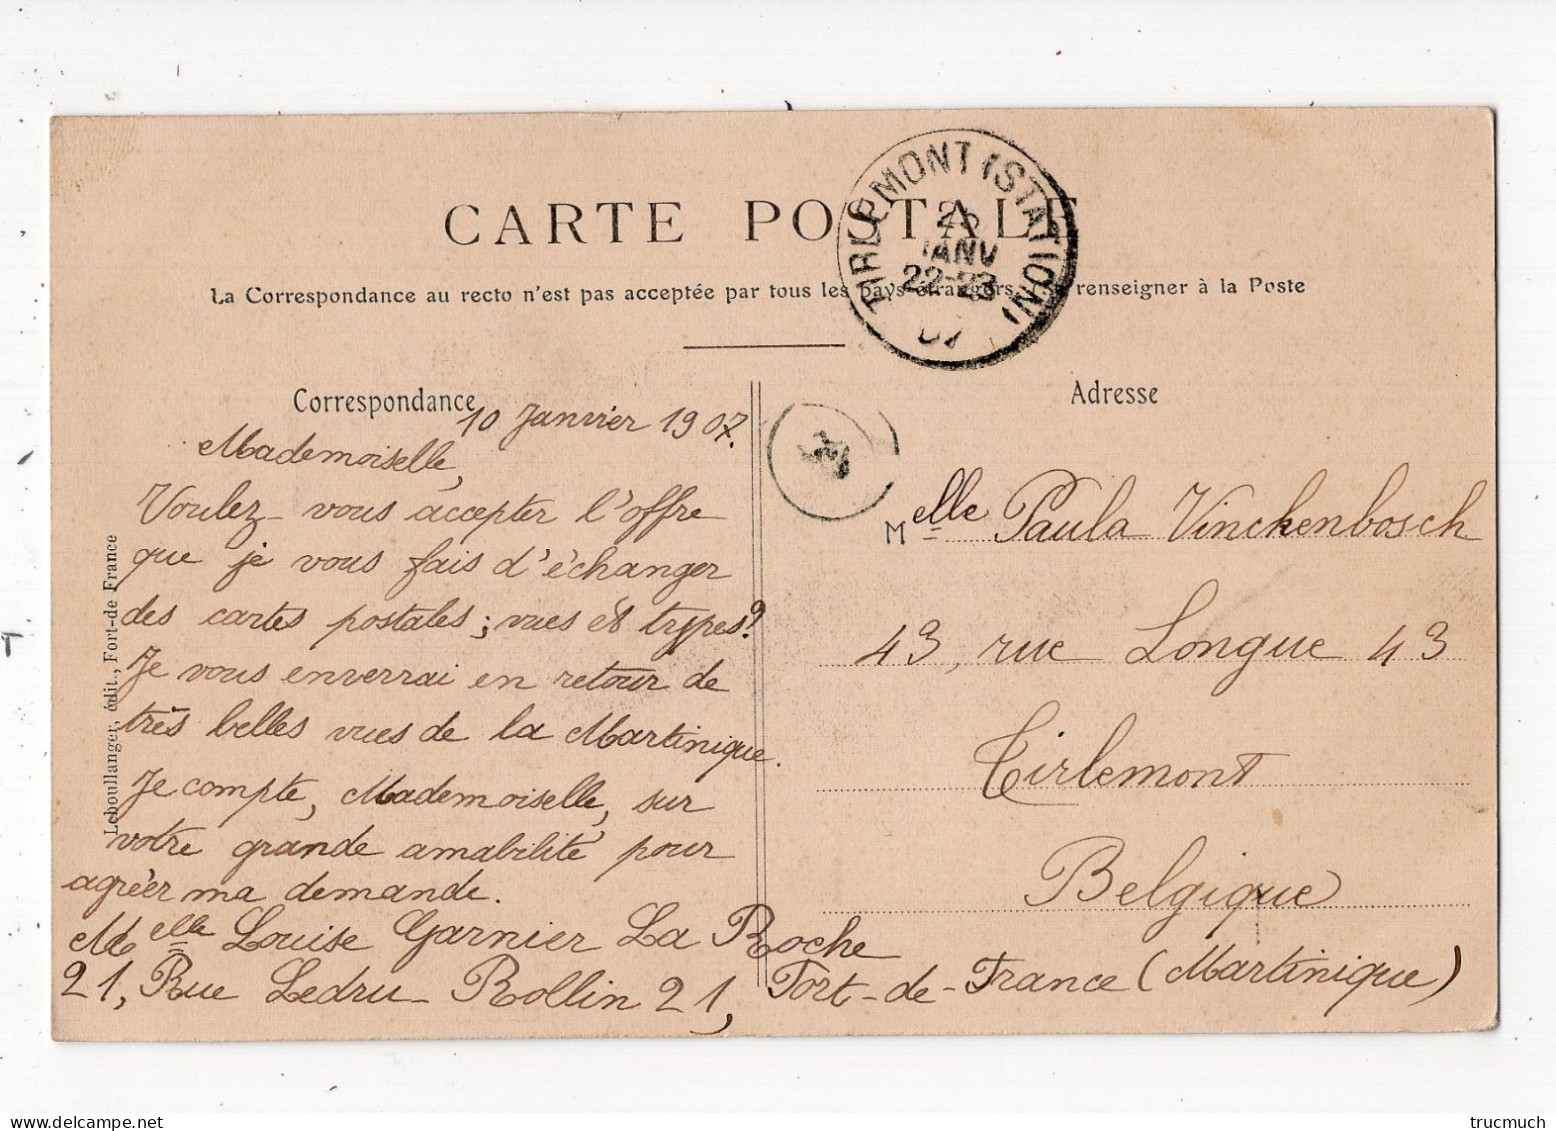 CARTE POSTALE
La Correspondance au recto n'est pas acceptée par tous les pays étrangers renseigner à la Poste
TIRLEMONT (STATION)
JANV
22-23
07
Correspondance
Adresse
10 Janvier 1907.
Mademoiselle,
Voulez-vous accepter l'offre
que je vous fais d'échanger
des cartes postales; vues et types?
Je vous enverrai en retour de
très belles vues de la Martinique.
Je compte, Mademoiselle, sur
votre grande amabilité pour
agréer ma demande.
Melle Louise Garnier La Roche
21, Rue Ledru-Rollin 21, Fort-de-France (Martinique)
Melle Paula Vinckenbosch
43, rue Longue 43
Tirlemont
Belgique
Leboullanger, édit., Fort-de France
T
trucmuch